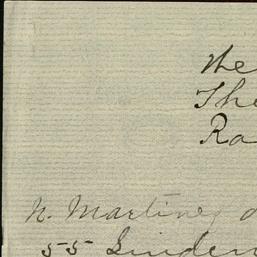 the
The
Ra
N. Martinez
55 Linden